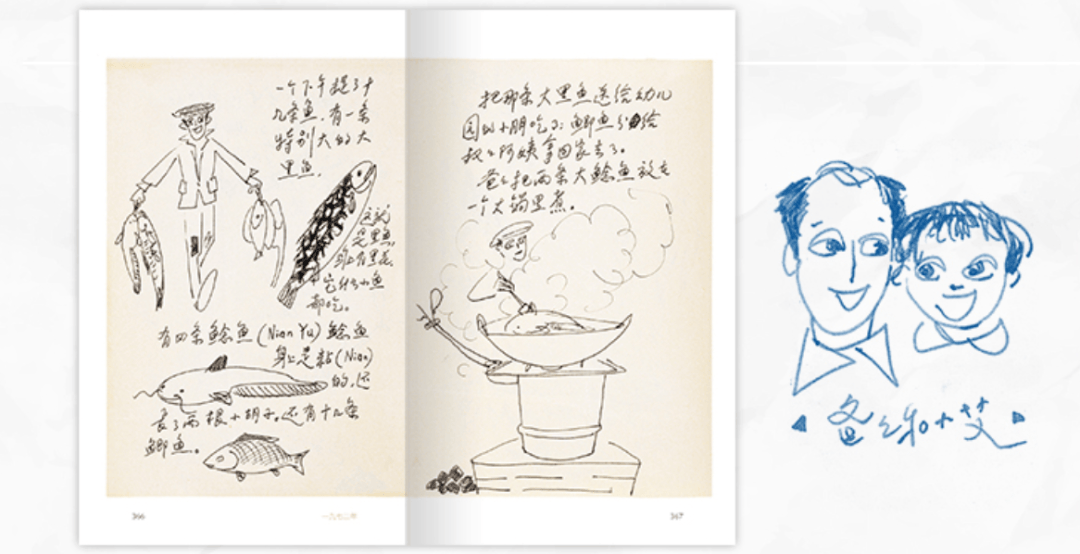 一个下午提了十
九条鱼.有一条
特别大的大
黑鱼.
这就
是黑鱼
身上有黑花
它什么小鱼
都吃。
有四条鲶鱼(Nian Yu)鲶鱼
身上是粘(Nian)
的.还
长了两根小胡子.还有十几条
鲫鱼。
366
一九七二年
把那条大黑鱼送给幼儿
园的小朋吃了;鲫鱼分给
叔叔阿姨拿回家去了。
爸爸把两条大鲶鱼放在
一个大锅里煮。
367
爸爸和小艾